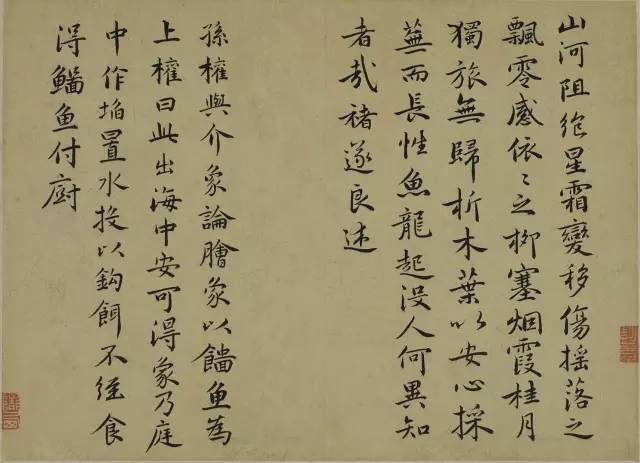 山河阻絕星霜變移傷搖落之
飄零感依〻之柳塞烟霞桂月
獨旅無歸折木葉以安心採
蕪而長性魚龍起沒人何異知
者哉褚遂良述
孫權與介象論膾象以鯔魚為
上權曰此出海中安可得象乃庭
中作埳置水投以鉤餌不經食
得鯔魚付廚